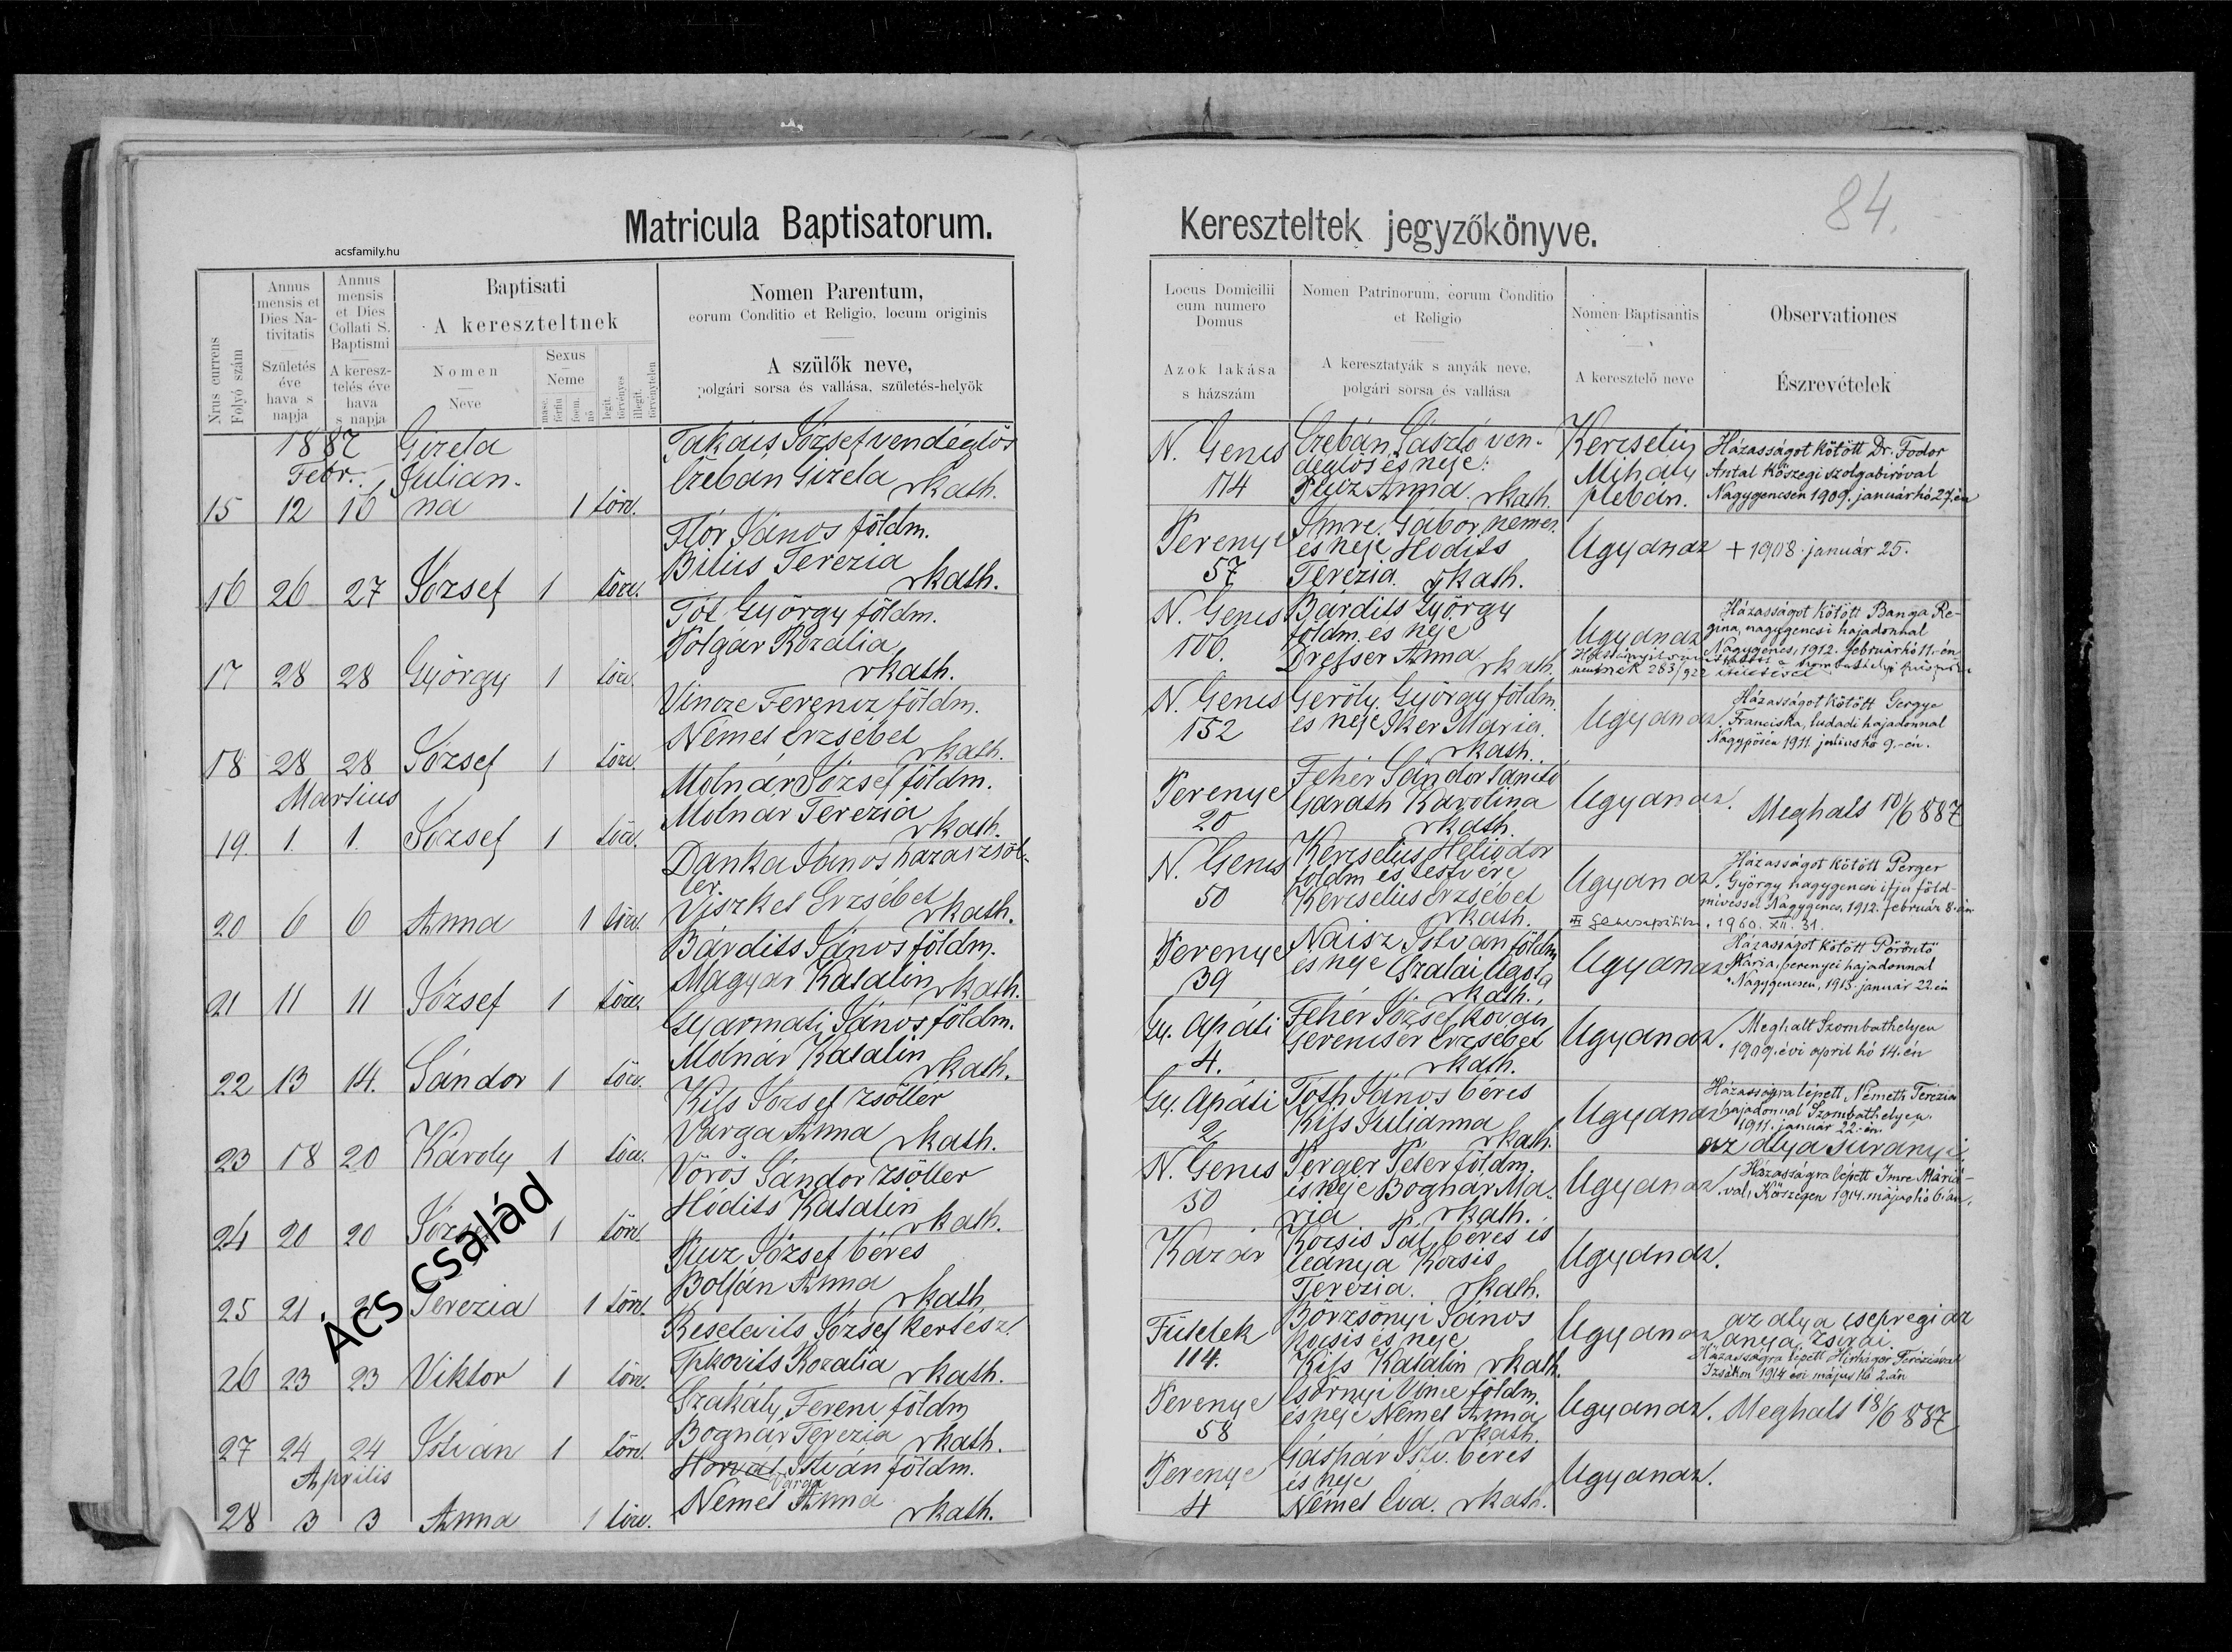 84.
Matricula Baptisatorum.
Kereszteltek jegyzőkönyve.
acsfamily.hu
Nrus currens
Folyó szám
Annus mensis et Dies Nativitatis
Születés éve hava s napja
Annus mensis et Dies Collati S. Baptismi
A keresztelés éve hava s napja
Baptisati
A kereszteltnek
Nomen
Neve
Sexus
Neme
masc. férfiu
foem. nő
legit. törvényes
illegit. törvénytelen
Nomen Parentum,
eorum Conditio et Religio, locum originis
A szülők neve,
polgári sorsa és vallása, születés-helyök
Locus Domicilii cum numero Domus
Azok lakása s házszám
Nomen Patrinorum, eorum Conditio et Religio
A keresztatyák s anyák neve, polgári sorsa és vallása
Nomen Baptisantis
A keresztelő neve
Observationes
Észrevételek
1887
Febr.
15 12 16 Gizela Julianna 1 törv.
Takács József vendéglős
Czebán Gizela rkath.
N. Gencs 174
Czebán László vendéglős és neje:
Anna rkath.
Kercselius Mihály plebán.
Házasságot kötött Dr. Fodor
Antal kőszegi szolgabiróval
Nagygencsen 1909. januárhó 27.én
16 26 27 József 1 törv.
Flór János földm.
Terezia rkath.
Perenye 57
Imre Gábor nemes
és neje Hodits
Terézia rkath.
Ugyanaz
+ 1908. január 25.
17 28 28 György 1 törv.
Tót György földm.
Polgár Rozalia
rkath.
N. Gencs 106.
Bárdits György
földm. és neje
Anna rkath.
Ugyanaz
Házasságot kötött Banga Regina,
nagygencsi hajadonnal
Nagygencs, 1912. februárhó 11.-én
18 28 28 József 1 törv.
Vincze Ferencz földm.
Német Erzsébet
rkath.
N. Gencs 152
Gerőly György földm.
és neje Iker Maria.
rkath.
Ugyanaz.
Házasságot kötött Gergye
Franciska, ludadi hajadonnal
Nagypösén 1911. julius hó 9.-én.
Martius
19. 1. 1. József 1 törv.
Molnár József földm.
Molnár Terézia
rkath.
Perenye 20
Fehér Sándor tanitó
Garath Karolina
rkath.
Ugyanaz.
Meghalt 10/6 887
20 6 6 Anna 1 törv.
Danka János házas zsöller.
Viszket Erzsébet
rkath.
N. Gencs 50
Kercselius Heliodor
földm és testvére
Kercselius Erzsébet
rkath.
Ugyanaz.
Házasságot kötött Perger
György nagygencsi ifju földmivessel
Nagygencs, 1912. február 8.-án
1960. XII. 31.
21 11 11 József 1 törv.
Bárdits János földm.
Magyar Katalin rkath.
Perenye 39
Naisz István földm.
és neje Szalai Agota
rkath.
Ugyanaz
Házasságot kötött Pöröntő
Mária, perenyei hajadonnal
Nagygencsen, 1913. január 22.én
22 13 14. Sándor 1 törv.
Gyarmati János földm.
Molnár Katalin
rkath.
Gy. Apáti 4.
Fehér József
Gerencsér Erzsébet
rkath.
Ugyanaz.
Meghalt Szombathelyen
1909. évi april hó 14.én
23 18 20 Károly 1 törv.
Kiss József zsöllér
Varga Anna rkath.
Gy. Apáti 2
Tóth János béres
Kiss Julianna
rkath.
Ugyanaz
Házasságra lépett Németh Terézia
hajadonnal Szombathelyen.
1911. január 22.-én.
24 20 20 József 1 törv.
Vörös Sándor zsöller
Hódits Katalin
rkath.
N. Gencs 30
Perger Péter földm.
és neje Bognár Maria
rkath.
Ugyanaz
az atya suranyi
Házasságra lépett Imre Máriával,
Kőszegen 1914. május hó 6.án.
25 21 Terezia 1 törv.
József béres
Boltján Anna
rkath
Kazár
Kocsis Pál, béres és
leánya Kocsis
Terézia. rkath.
Ugyanaz.
26 23 23 Viktor 1 törv.
József kertész
Rozalia rkath.
Fütelek 114.
Börzsönyi János
kocsis és neje
Kiss Katalin rkath.
Ugyanaz
az atya csepregi az
anya zsirai.
27 24 24 István 1 törv.
Szakály Ferenc földm
Bognár Terézia rkath.
Perenye 58
Csörnyi Vince földm.
és neje Német Anna
rkath.
Ugyanaz.
Meghalt 18/6 887
Aprilis
28 3 3 Anna 1 törv.
Horvat István földm.
Varga
Német Anna rkath.
Perenye 4
Gáspár Istv. béres
és neje
Német Éva. rkath.
Ugyanaz.
Ács család